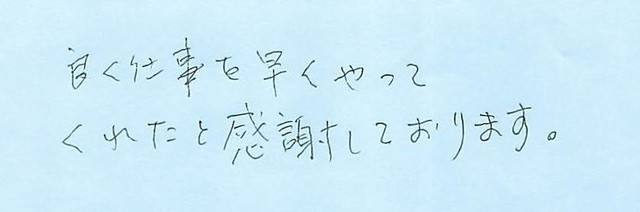 良く仕事を早くやって
くれたと感謝しております。